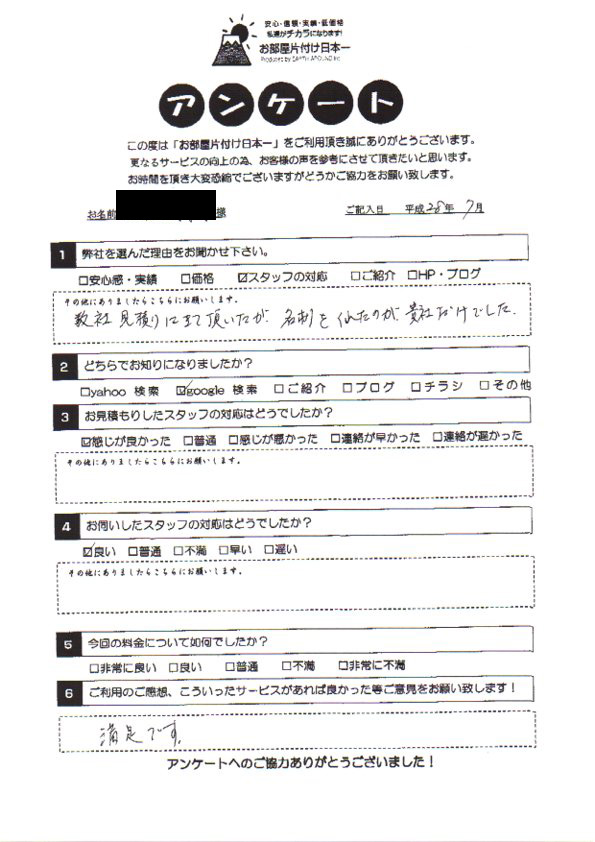 安心・信頼・実績・低価格
私達がチカラになります!
お部屋片付け日本一
Produced by EARTH AROUND Inc
アンケート
この度は「お部屋片付け日本一」をご利用頂き誠にありがとうございます。
更なるサービスの向上の為、お客様の声を参考にさせて頂きたいと思います。
お時間を頂き大変恐縮でございますがどうかご協力をお願い致します。
お名前 様 ご記入日 平成28年 7月
1 弊社を選んだ理由をお聞かせ下さい。
□安心感・実績 □価格 ☑スタッフの対応 □ご紹介 □HP・ブログ
その他にありましたらこちらにお願いします。
数社見積りに来て頂いたが、名刺を くれたのが、貴社だけでした。
2 どちらでお知りになりましたか?
□yahoo 検索 ☑google 検索 □ご紹介 □ブログ □チラシ □その他
3 お見積もりしたスタッフの対応はどうでしたか?
☑感じが良かった □普通 □感じが悪かった □連絡が早かった □連絡が遅かった
その他にありましたらこちらにお願いします。
4 お伺いしたスタッフの対応はどうでしたか?
☑良い □普通 □不満 □早い □遅い
その他にありましたらこちらにお願いします。
5 今回の料金について如何でしたか?
□非常に良い □良い □普通 □不満 □非常に不満
6 ご利用のご感想、こういったサービスがあれば良かった等ご意見をお願い致します!
満足です。
アンケートへのご協力ありがとうございました!